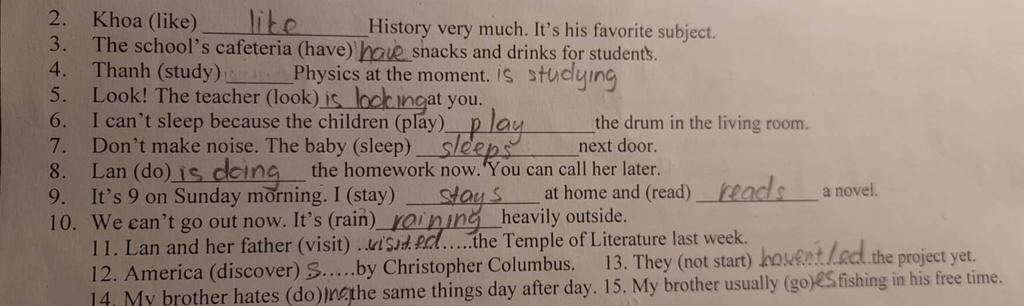 2. Khoa (like) like History very much. It's his favorite subject.
3. The school's cafeteria (have) have snacks and drinks for students.
4. Thanh (study) Physics at the moment. is studying
5. Look! The teacher (look) is looking at you.
6. I can't sleep because the children (play) play the drum in the living room.
7. Don't make noise. The baby (sleep) sleeps next door.
8. Lan (do) is doing the homework now. You can call her later.
9. It's 9 on Sunday morning. I (stay) stays at home and (read) reads a novel.
10. We can't go out now. It's (rain) raining heavily outside.
11. Lan and her father (visit) ..visited.....the Temple of Literature last week.
12. America (discover) s.....by Christopher Columbus. 13. They (not start) the project yet.
14. My brother hates (do)ing the same things day after day. 15. My brother usually (go)es fishing in his free time.